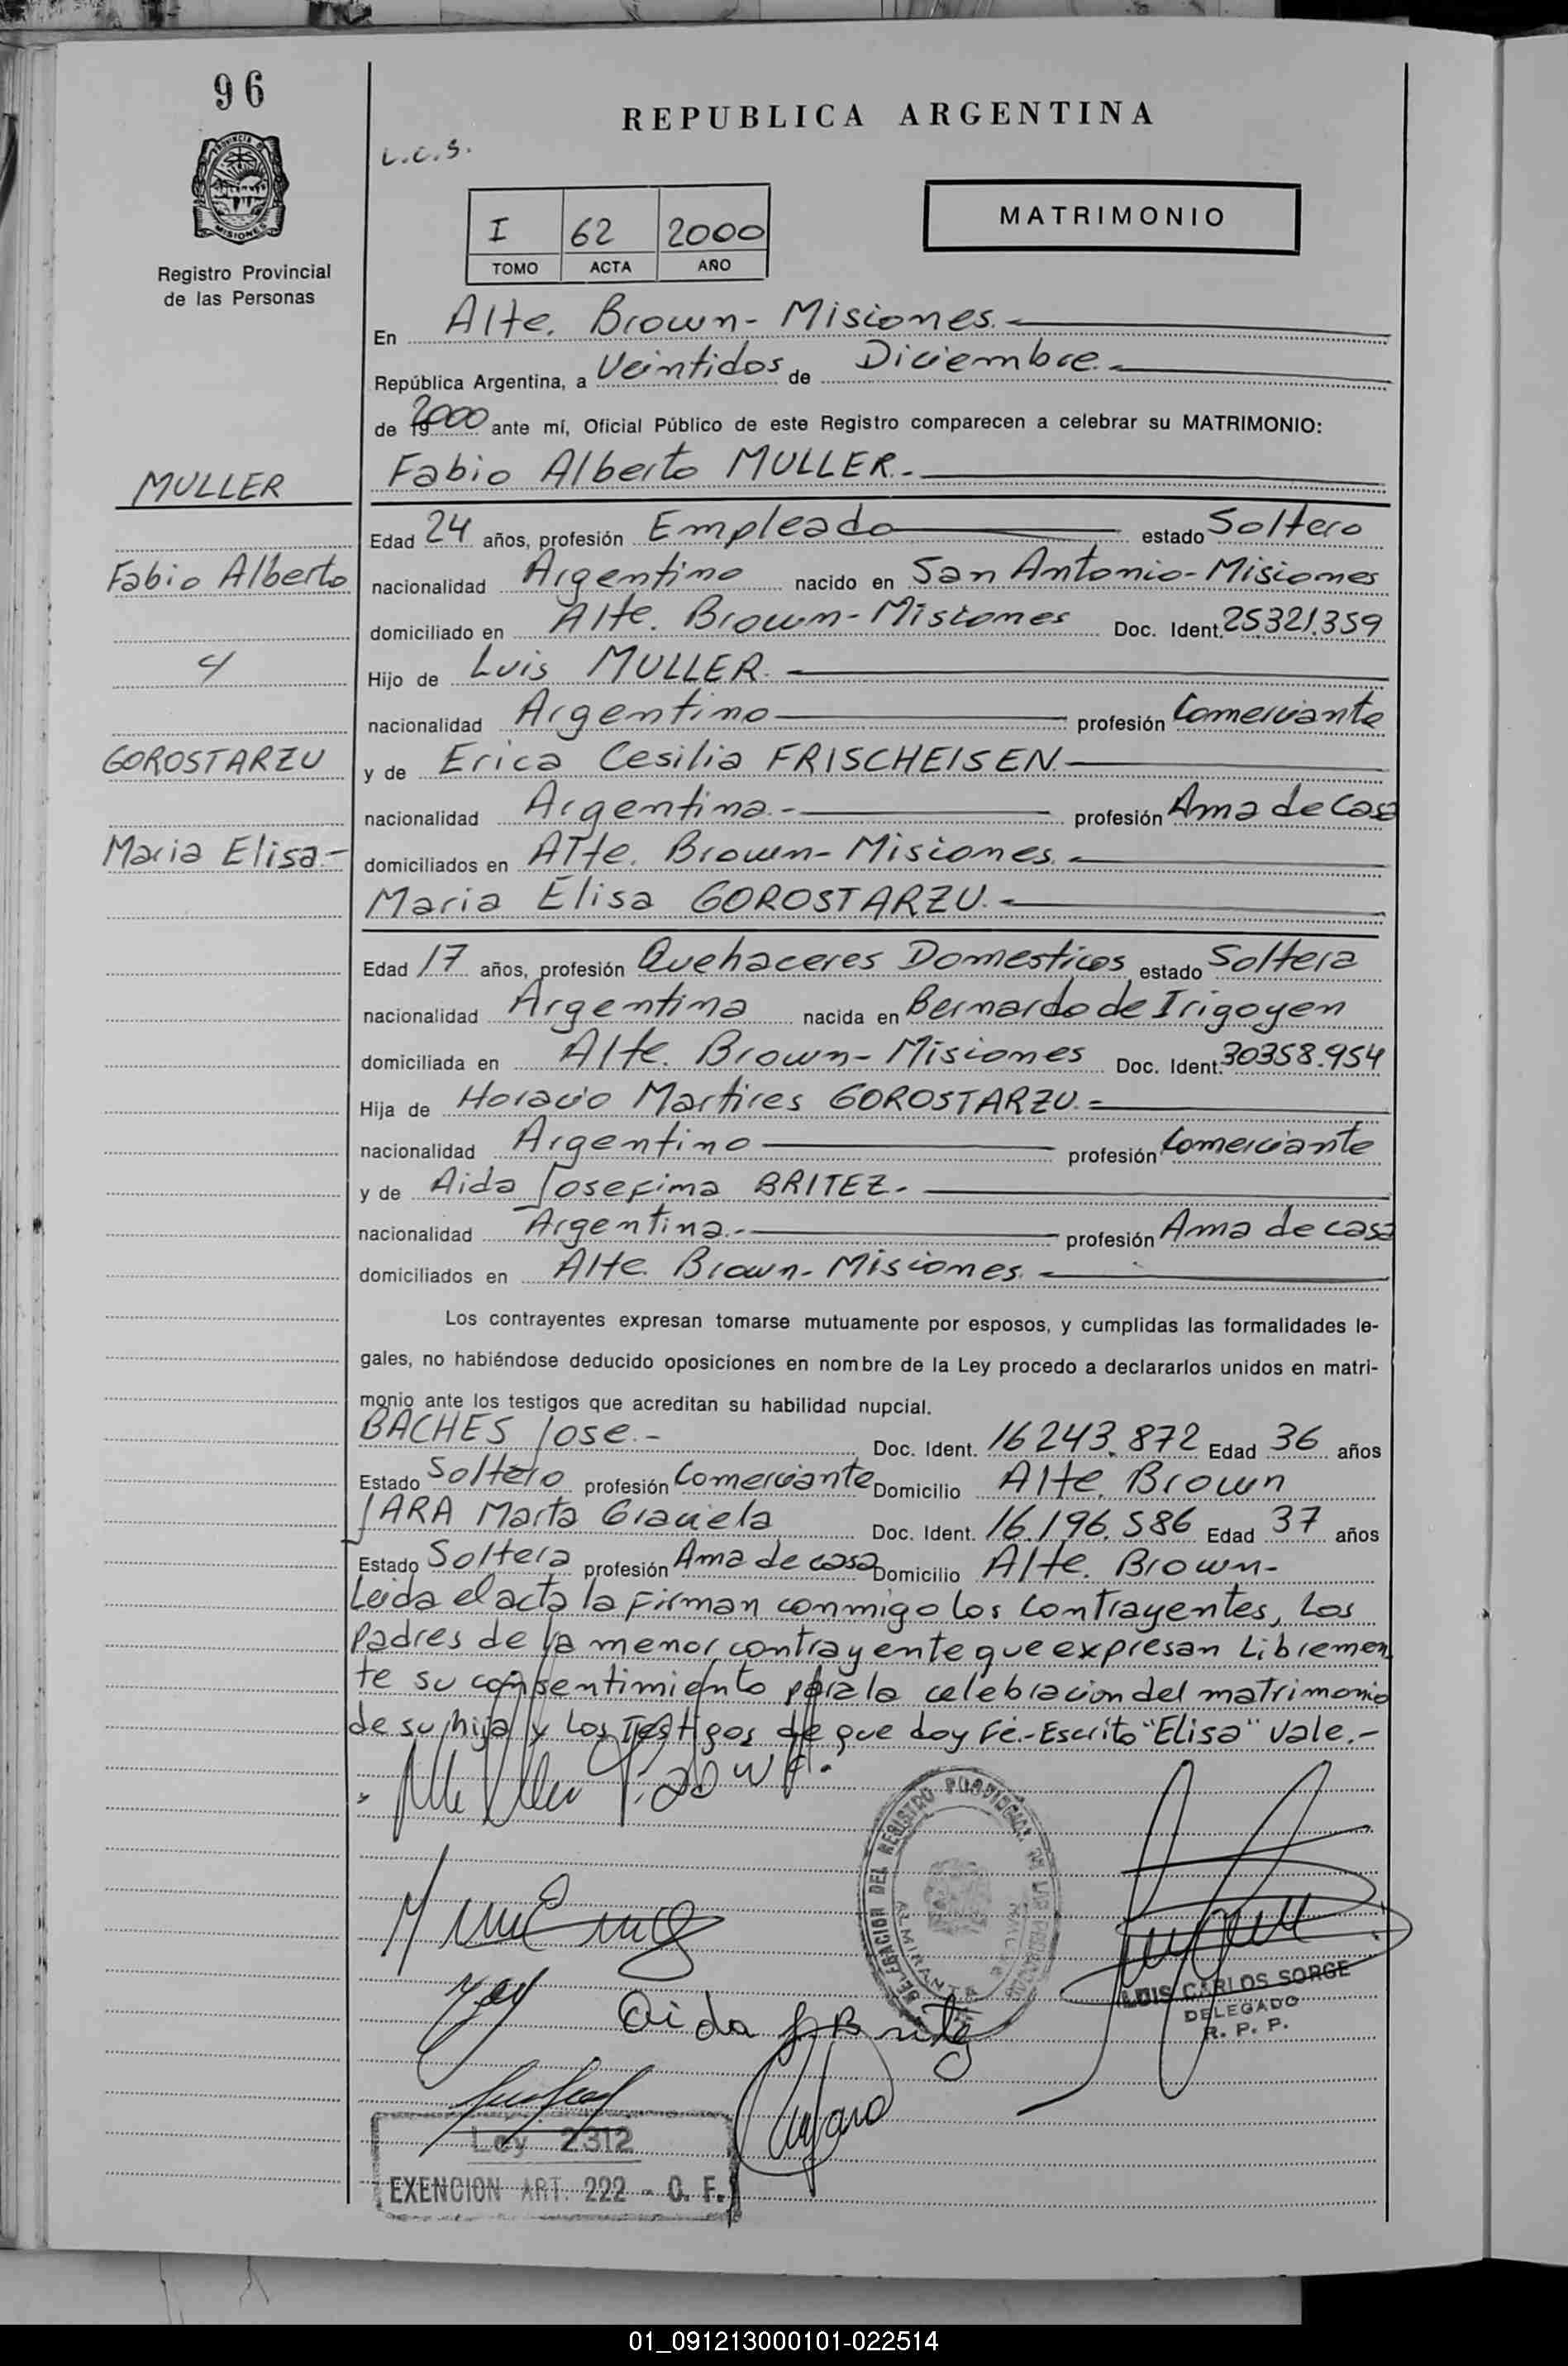 96
REPUBLICA ARGENTINA
L.C.S.
PROVINCIA DE
MISIONES
Registro Provincial
de las Personas
I 62 2000
TOMO ACTA AÑO
MATRIMONIO
En Alte. Brown - Misiones.-
República Argentina, a Veintidos de Diciembre.-
de 2000 ante mí, Oficial Público de este Registro comparecen a celebrar su MATRIMONIO:
MULLER
Fabio Alberto MULLER.-
Edad 24 años, profesión Empleado estado Soltero
Fabio Alberto
nacionalidad Argentino nacido en San Antonio - Misiones
domiciliado en Alte. Brown - Misiones Doc. Ident. 25.321.359
y
Hijo de Luis MULLER.-
nacionalidad Argentino profesión Comerciante
GOROSTARZU
y de Erica Cesilia FRISCHEISEN.-
nacionalidad Argentina.- profesión Ama de Casa
Maria Elisa.-
domiciliados en Alte. Brown - Misiones.-
Maria Elisa GOROSTARZU.-
Edad 17 años, profesión Quehaceres Domesticos estado Soltera
nacionalidad Argentina nacida en Bernardo de Irigoyen
domiciliada en Alte. Brown - Misiones Doc. Ident. 30358.954
Hija de Horacio Martires GOROSTARZU.=
nacionalidad Argentino profesión Comerciante
y de Aida Josefima BRITEZ.-
nacionalidad Argentina.- profesión Ama de casa
domiciliados en Alte. Brown - Misiones.-
Los contrayentes expresan tomarse mutuamente por esposos, y cumplidas las formalidades le-
gales, no habiéndose deducido oposiciones en nombre de la Ley procedo a declararlos unidos en matri-
monio ante los testigos que acreditan su habilidad nupcial.
BACHES Jose.- Doc. Ident. 16243.872 Edad 36 años
Estado Soltero profesión Comerciante Domicilio Alte. Brown
JARA Marta Graciela Doc. Ident. 16.196.586 Edad 37 años
Estado Soltera profesión Ama de casa Domicilio Alte. Brown-
Leida el acta la Firman conmigo los Contrayentes, Los
Padres de la menor contrayente que expresan Libremen
te su consentimiento para la celebracion del matrimonio
de su hija y Los Testigos de que doy Fé.- Escrito "Elisa" Vale.-
DELEGACION DEL REGISTRO PROVINCIAL DE LAS PERSONAS
ALMIRANTE
Aida J B ritez
LUIS CARLOS SORGE
DELEGADO
R. P. P.
Ley 2312
EXENCION ART. 222 - C. F.
01_091213000101-022514